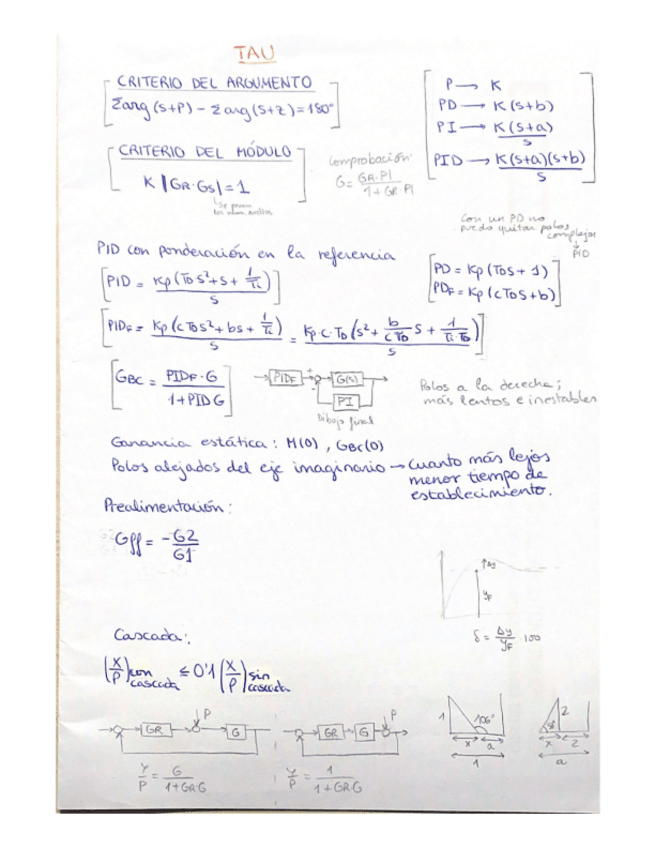 TAU
CRITERIO DEL ARGUMENTO
Σarg(s+P) - Σarg(s+z)=180°
P → K
PD → K(s+b)
PI → K(s+a)/s
PID → K(s+a)(s+b)/s
CRITERIO DEL MÓDULO
K |GR·Gs|=1
Comprobación:
G= GR·PI/1+GR·PI
Con un PD no
puedo quitar polos
complejos
↓
PID
PID con ponderación en la referencia
PID = Kp(TDs²+s+1/Ti)/s
PD = Kp(TDs+1)
PDF = Kp(cTDs+b)
PIDF = Kp(cTDs²+bs+1/Ti)/s = Kp·c·TD(s²+b/cTD s+1/Ti·TD)/s
GBC = PIDF·G/1+PIDG
PIDF
+
-
G(s)
PI
Dibujo final
Polos a la derecha;
más lentos e inestables
Ganancia estática: M(0), GBC(0)
Polos alejados del eje imaginario → Cuanto más lejos
menor tiempo de
establecimiento.
Prealimentación:
Gff = -G2/G1
↑Δy
yF
δ = Δy/yF · 100
Cascada:
(X/P)con cascada ≤ 0'1 (X/P)sin cascada
GR
P
G
GR
G
P
Y/P = G/1+GR·G
Y/P = 1/1+GRG
1
106°
x
a
1
2
x
2
a